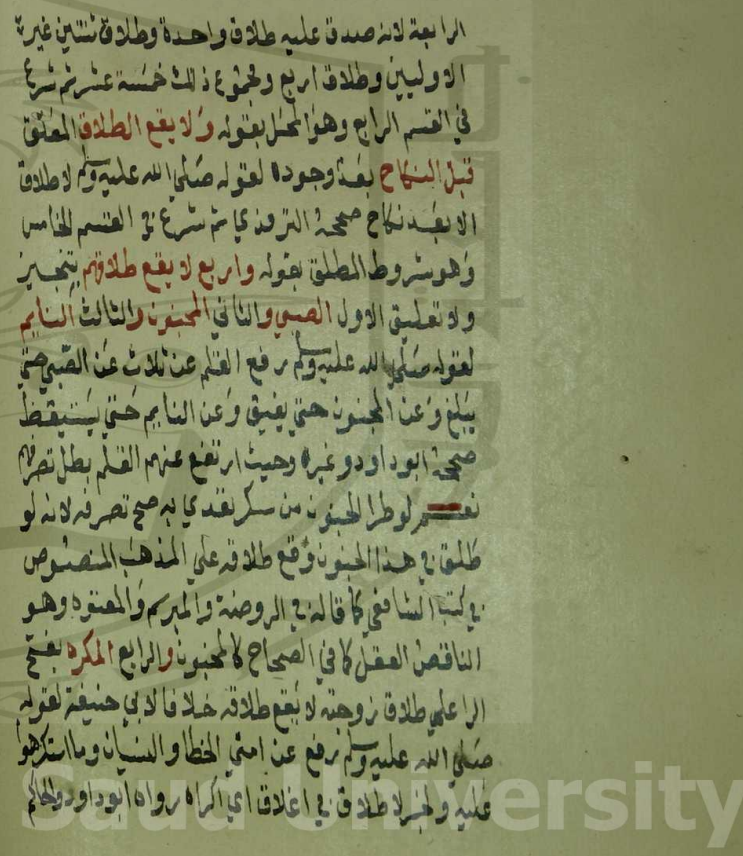 الرابعة لانه صدق عليه طلاق واحدة وطلاق ثنتين غير
الاوليين وطلاق اربع ومجموع ذلك خمسة عشر ثم شرع
في القسم الرابع وهو المحل بقوله ولا يقع الطلاق المعلق
قبل النكاح بعد وجوده لقوله صلي الله عليه وسلم لا طلاق
الا بعد نكاح صححه الترمذي ثم شرع في القسم الخامس
وهو شروط المطلق بقوله واربع لا يقع طلاقهم بتنجيز
ولا تعليق الاول الصبي والثاني المجنون والثالث النايم
لقوله صلي الله عليه وسلم رفع القلم عن ثلاث عن الصبي حتي
يبلغ وعن المجنون حتي يفيق وعن النايم حتي يستيقظ
صححه ابو داود وغيره وحيث ارتفع عنهم القلم بطل تصرفهم
نعم لو طرا الجنون من سكر تعدي به صح تصرفه لانه لو
طلق في هذا الجنون وقع طلاقه علي المذهب المنصوص
في كتب الشافعي كما قاله في الروضة والمبرسم والمعتوه وهو
الناقص العقل كما في الصحاح كالمجنون والرابع المكره بفتح
الرا علي طلاق زوجته لا يقع طلاقه خلافا لابي حنيفة لقوله
صلي الله عليه وسلم رفع عن امتي الخطا والنسيان وما استكرهوا
عليه ولخبر لا طلاق في اغلاق اي اكراه رواه ابو داود والحاكم
Saud University